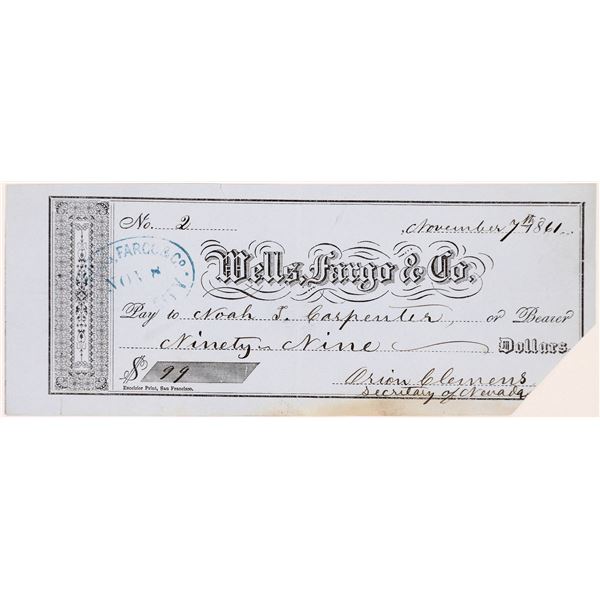 No. 2
November 7th 1861
FARGO & CO.
NOV 7
Wells, Fargo & Co.
Pay to Noah T. Carpenter, or Bearer
Ninety Nine Dollars
$ 99
Excelsior Print, San Francisco.
Orion Clemens
Secretary of Nevada